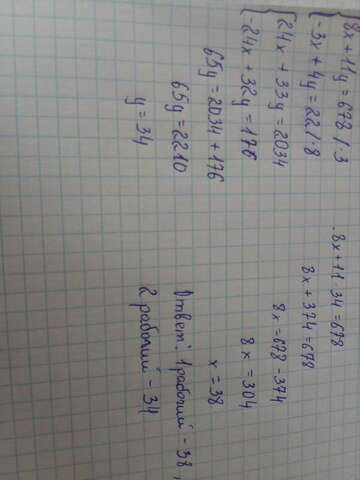 8x + 11y = 678 /·3
-3x + 4y = 22 /·8
24x + 33y = 2034
-24x + 32y = 176
65y = 2034 + 176
65y = 2210
y = 34
8x + 11·34 = 678
8x + 374 = 678
8x = 678 - 374
8x = 304
x = 38
Ответ: 1 рабочий - 38,
2 рабочий - 34